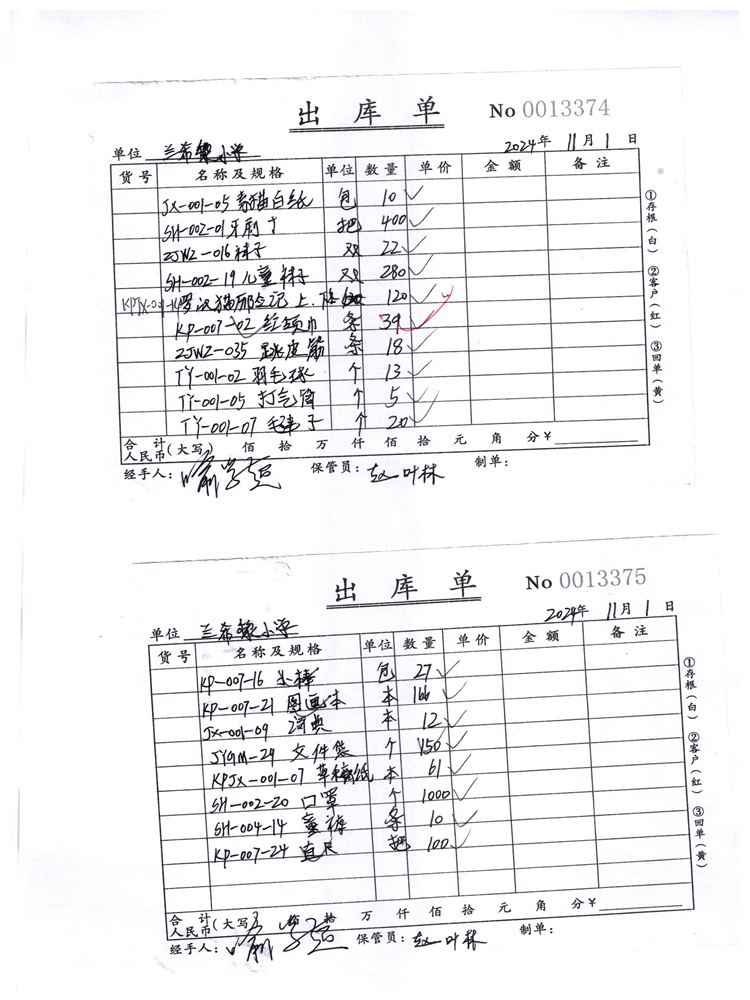 出 库 单 No 0013374
单位 兰希黎小学 2024年 11月 1日
货号 名称及规格 单位 数量 单价 金额 备注
JX-001-05 熊猫白纸 包 10 ✓
SH-002-01 牙刷 把 400 ✓
ZJWZ-016 袜子 双 22 ✓
SH-002-19 儿童袜子 双 280 ✓
罗汉猫那令记 上. 120 ✓
KP-007-02 红领巾 条 39 ✓
ZJWZ-035 跳皮筋 条 18 ✓
TY-001-02 羽毛球 个 13 ✓
TY-001-05 打气筒 个 5 ✓
TY-001-07 毛毽子 个 20 ✓
合计人民币(大写) 佰 拾 万 仟 佰 拾 元 角 分 ¥
经手人: 保管员: 赵叶林 制单:
①存根(白) ②客户(红) ③回单(黄)
出 库 单 No 0013375
单位 兰希黎小学 2024年 11月 1日
货号 名称及规格 单位 数量 单价 金额 备注
KP-007-16 小棒 包 27 ✓
KP-007-21 图画本 本 166 ✓
JX-001-09 词典 本 12 ✓
JYGM-29 文件袋 个 150 ✓
KPJX-001-07 草稿纸 本 61 ✓
SH-002-20 口罩 个 1000 ✓
SH-004-14 童裤 条 10 ✓
KP-007-24 直尺 把 100 ✓
合计人民币(大写) 佰 拾 万 仟 佰 拾 元 角 分 ¥
经手人: 保管员: 赵叶林 制单:
①存根(白) ②客户(红) ③回单(黄)